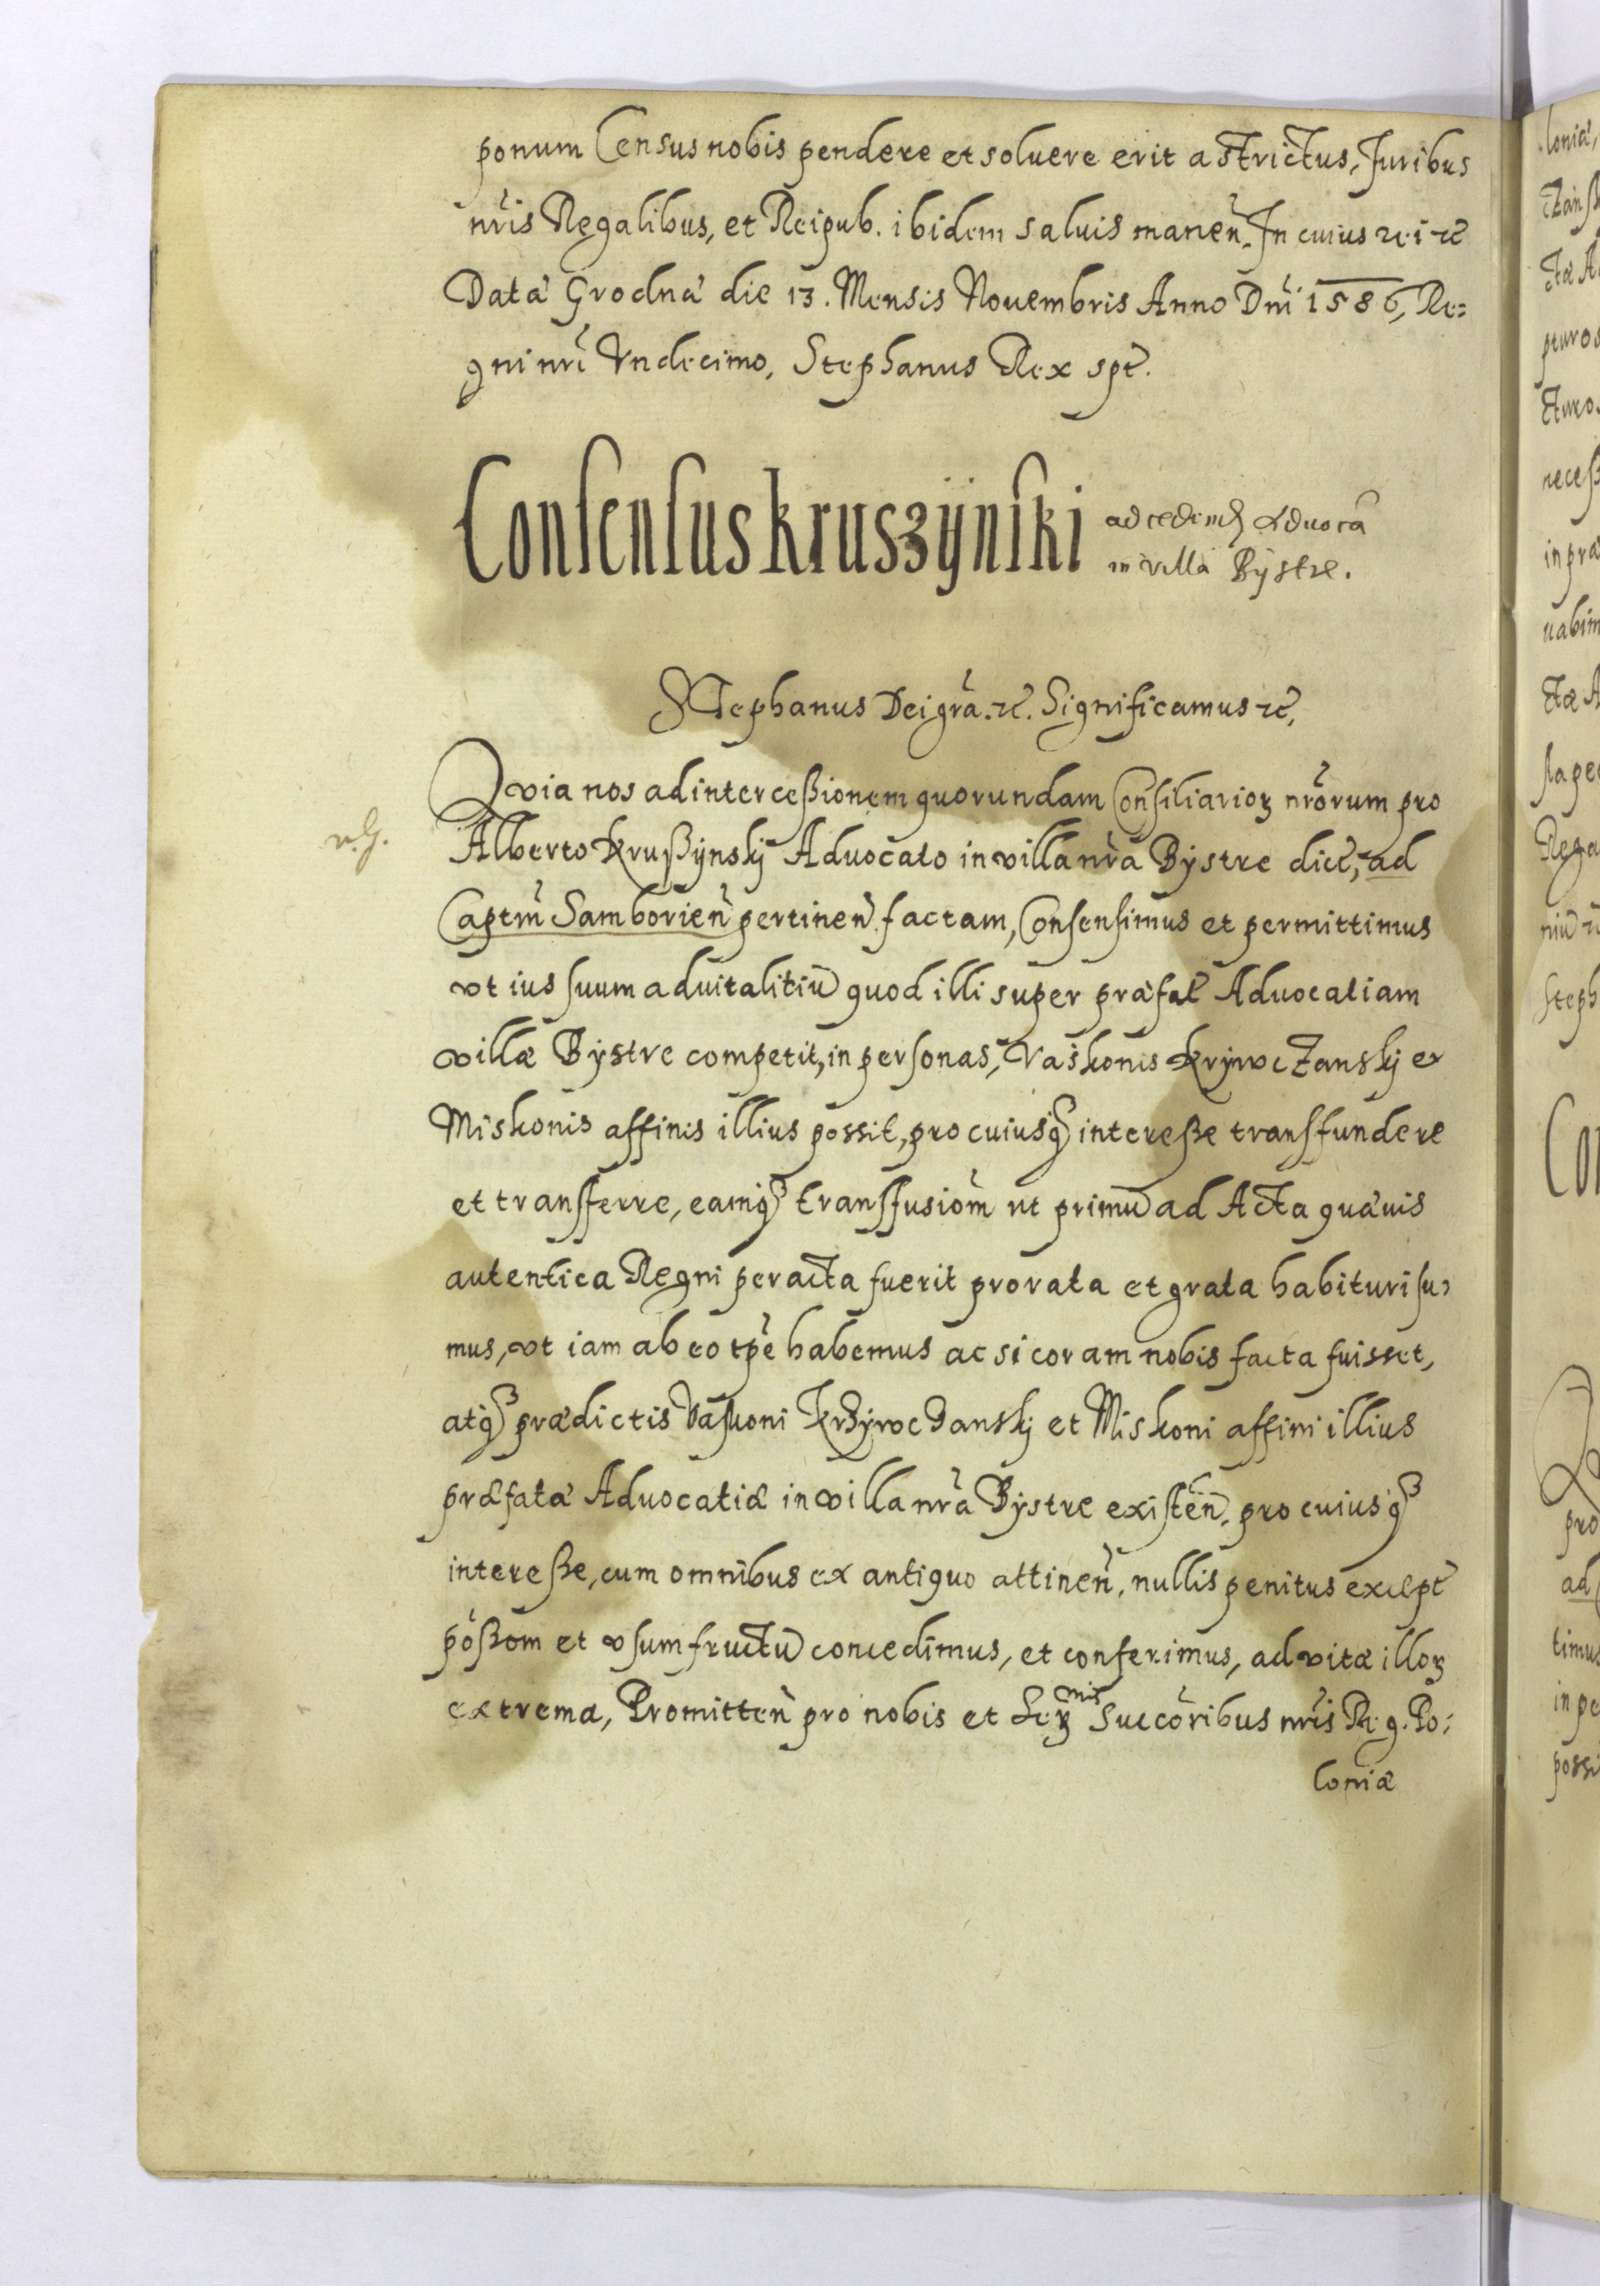 ponum Census nobis pendere et soluere erit astrictus, Juribus
nr̃is Regalibus, et Reipub. ibidem saluis maneñ. In cuius rei &c̃
Data Grodna die 13. Mensis Nouembris Anno Dñi 1586, Re=
gni nr̃i Vndecimo, Stephanus Rex spt̃.
Consensus Kruszÿnski ad cedend Aduocã
in villa Bÿstre.
Stephanus Dei gr̃a. &c̃. Significamus &c̃,
Quia nos ad intercessionem quorundam Consiliarioꝝ nr̃orum pro
v. G.
Alberto Krußÿnskj Aduocato in villa nr̃a Bÿstre dict̃, ad
Captm̃ Samborieñ pertineñ factam, Consensimus et permittimus
vt ius suum aduitalitiũ quod illi super præfat̃ Aduocatiam
villæ Bÿstre competit, in personas, Vaskonis KrÿwcZanskj et
Miskonis affinis illius possit, pro cuiusqꝫ interesse transfundere
et transferre, eamqꝫ transfusiom̃ ut primũ ad Acta quæuis
autentica Regni peracta fuerit pro rata et grata habituri su=
mus, vt iam ab eo tp̃e habemus ac si coram nobis facta fuisset,
atqꝫ prædictis Vaskoni Krzÿwczanskj et Miskoni affini illius
præfatã Aduocatiã in villa nr̃a Bÿstre existeñ. pro cuiusqꝫ
interesse, cum omnibus ex antiquo attineñ. nullis penitus except̃
poßom̃ et vsumfructũ concedimus, et conferimus, ad vitæ illoꝝ
extrema, Promitteñ pro nobis et Serᵐⁱˢ Succor̃ibus nr̃is Reg. Po:
loniæ